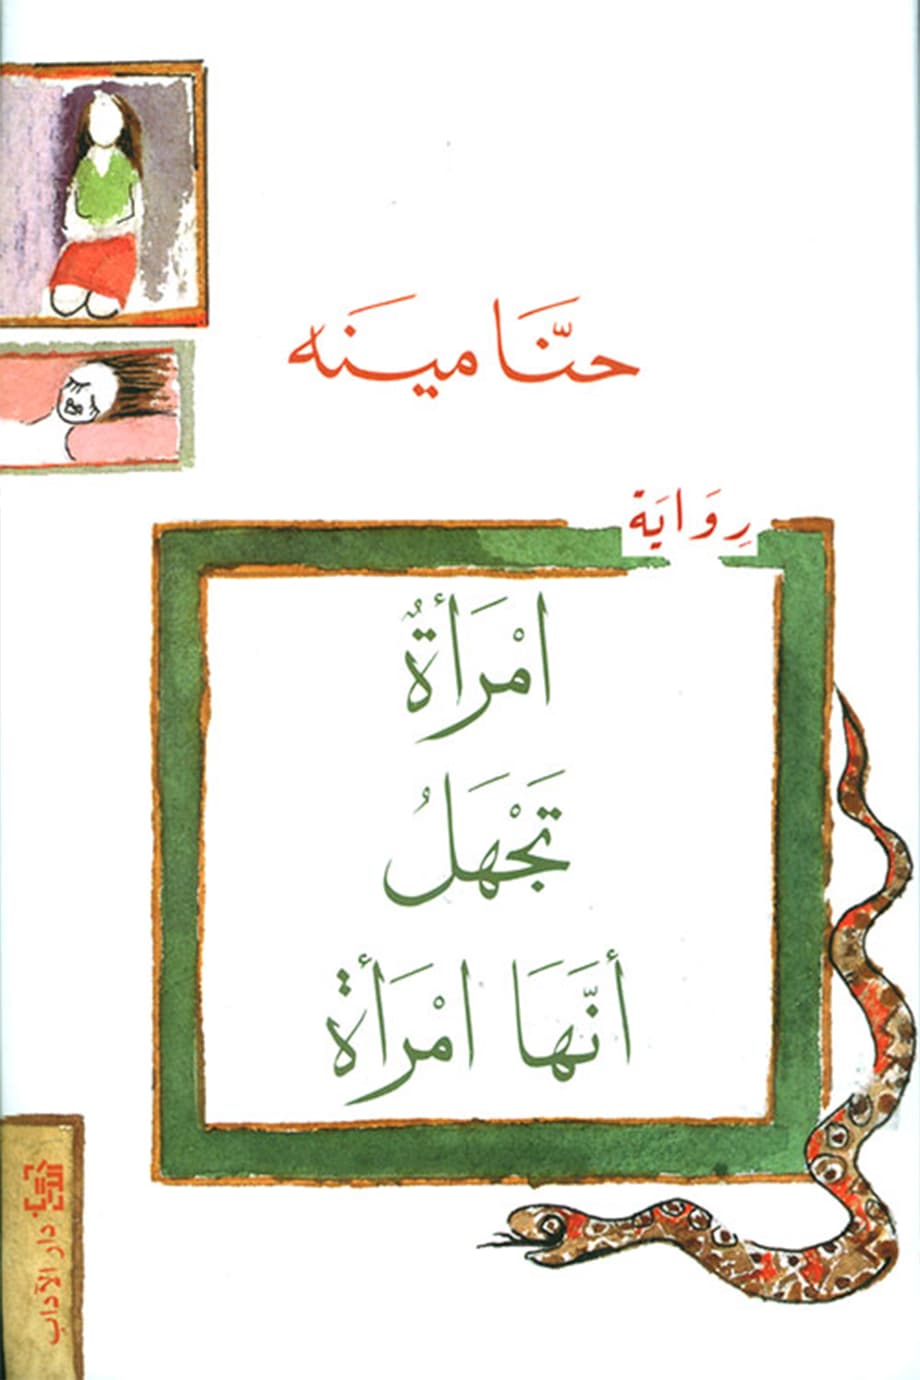 حنَّا مينَه
رِوَايَة
امْرَأَةٌ
تَجْهَلُ
أَنَّهَا امْرَأَة
دار الآداب